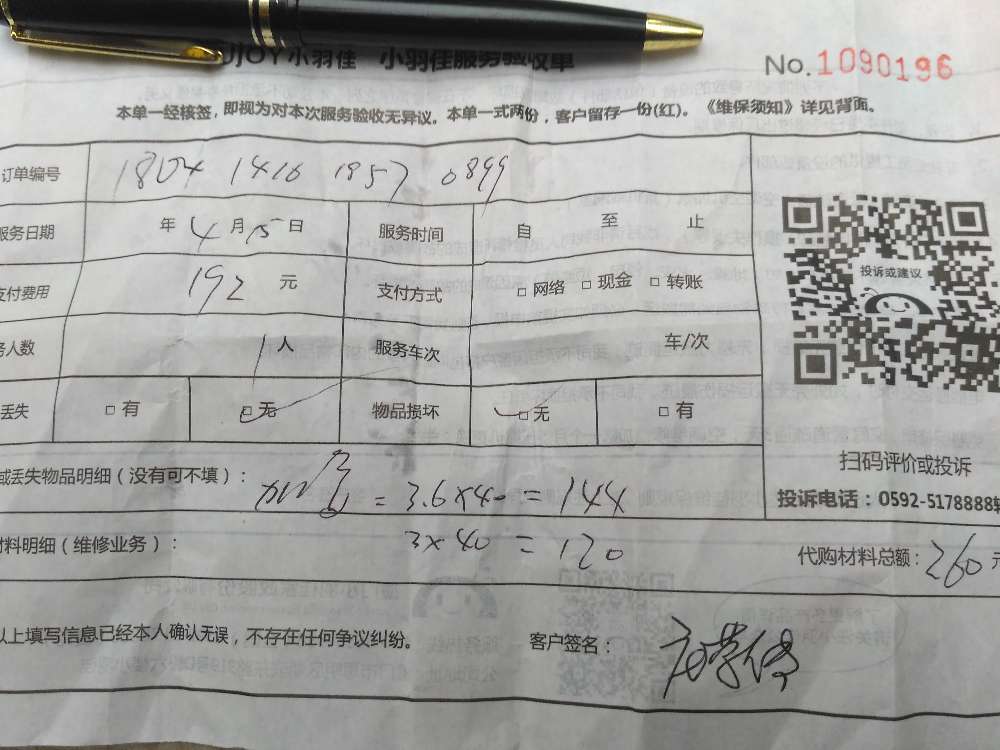 JOY小羽佳 小羽佳服务验收单
No.1090196
本单一经核签，即视为对本次服务验收无异议。本单一式两份，客户留存一份(红)。《维保须知》详见背面。
订单编号 1804 1416 1957 0899
服务日期 年4月15日 服务时间 自 至 止
支付费用 192 元 支付方式 □网络 □现金 □转账
务人数 1人 服务车次 车/次
丢失 □有 □无 物品损坏 □无 □有
投诉或建议
扫码评价或投诉
投诉电话：0592-5178888转
或丢失物品明细（没有可不填）：
=3.6×40=144
材料明细（维修业务）： 3×40=120
代购材料总额：260元
以上填写信息已经本人确认无误，不存在任何争议纠纷。 客户签名：